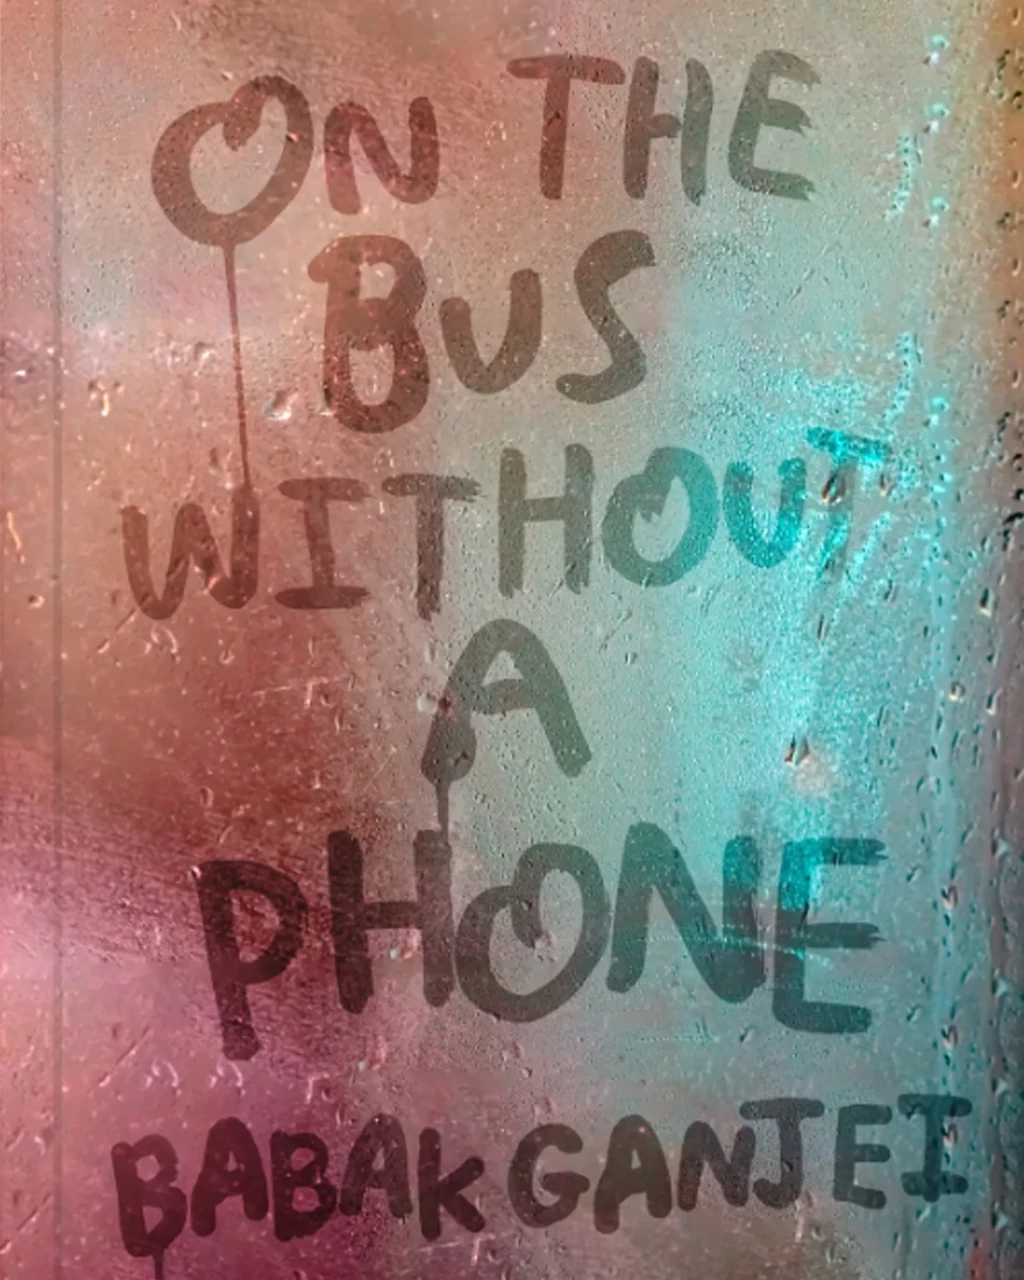 ON THE
BUS
WITHOUT
A
PHONE
BABAK GANJEI